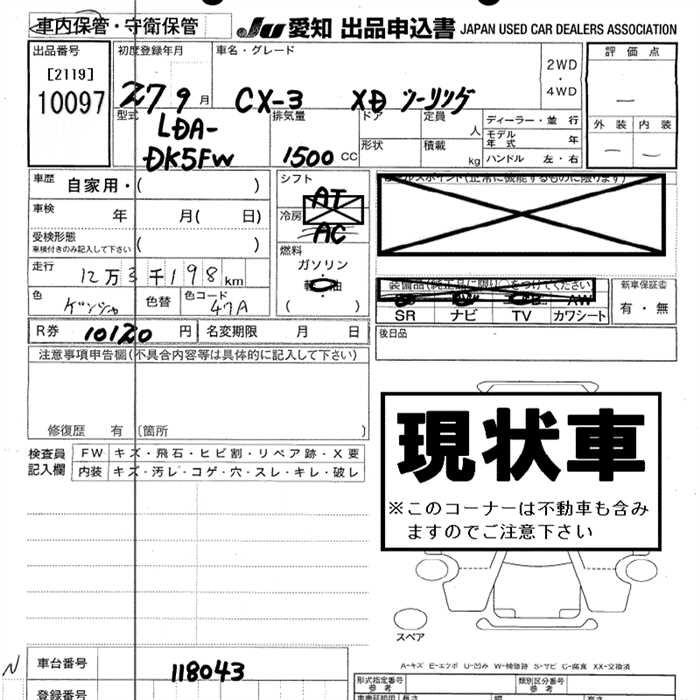 車内保管・守衛保管
JU 愛知 出品申込書 JAPAN USED CAR DEALERS ASSOCIATION
出品番号
[2119]
10097
初度登録年月
27 9月
車名・グレード
CX-3 XD ツーリング
2WD
・
4WD
評価点
外装 内装
型式
LDA-
DK5FW
排気量
1500 CC
ドア
定員
人
形状
積載
kg
ディーラー・並行
モデル年式 年
ハンドル 左・右
車歴
自家用・( )
車検
年 月( 日)
受検形態
車検付きのみ記入して下さい ( )
走行
12万3千198km
色
色替
色コード
47A
シフト
AT
冷房
AC
燃料
ガソリン
( )
(正常に機能するものに限ります)
装備品(純正品に限り)○をつけてください
AW
SR ナビ TV カワシート
新車保証書
有・無
R券 10120 円 名変更期限 月 日
後日品
注意事項申告欄(不具合内容等は具体的に記入して下さい)
修復歴 有 〔箇所 〕
検査員
記入欄
FW キズ・飛石・ヒビ割・リペア跡・X要
内装 キズ・汚レ・コゲ・穴・スレ・キレ・破レ
現状車
※このコーナーは不動車も含み
ますのでご注意下さい
スペア
A-キズ E-エクボ U-凹み W-補修跡 S-サビ C-腐食 XX-交換済
N
車台番号
118043
登録番号
形式指定番号
参考
類別区分番号
参考